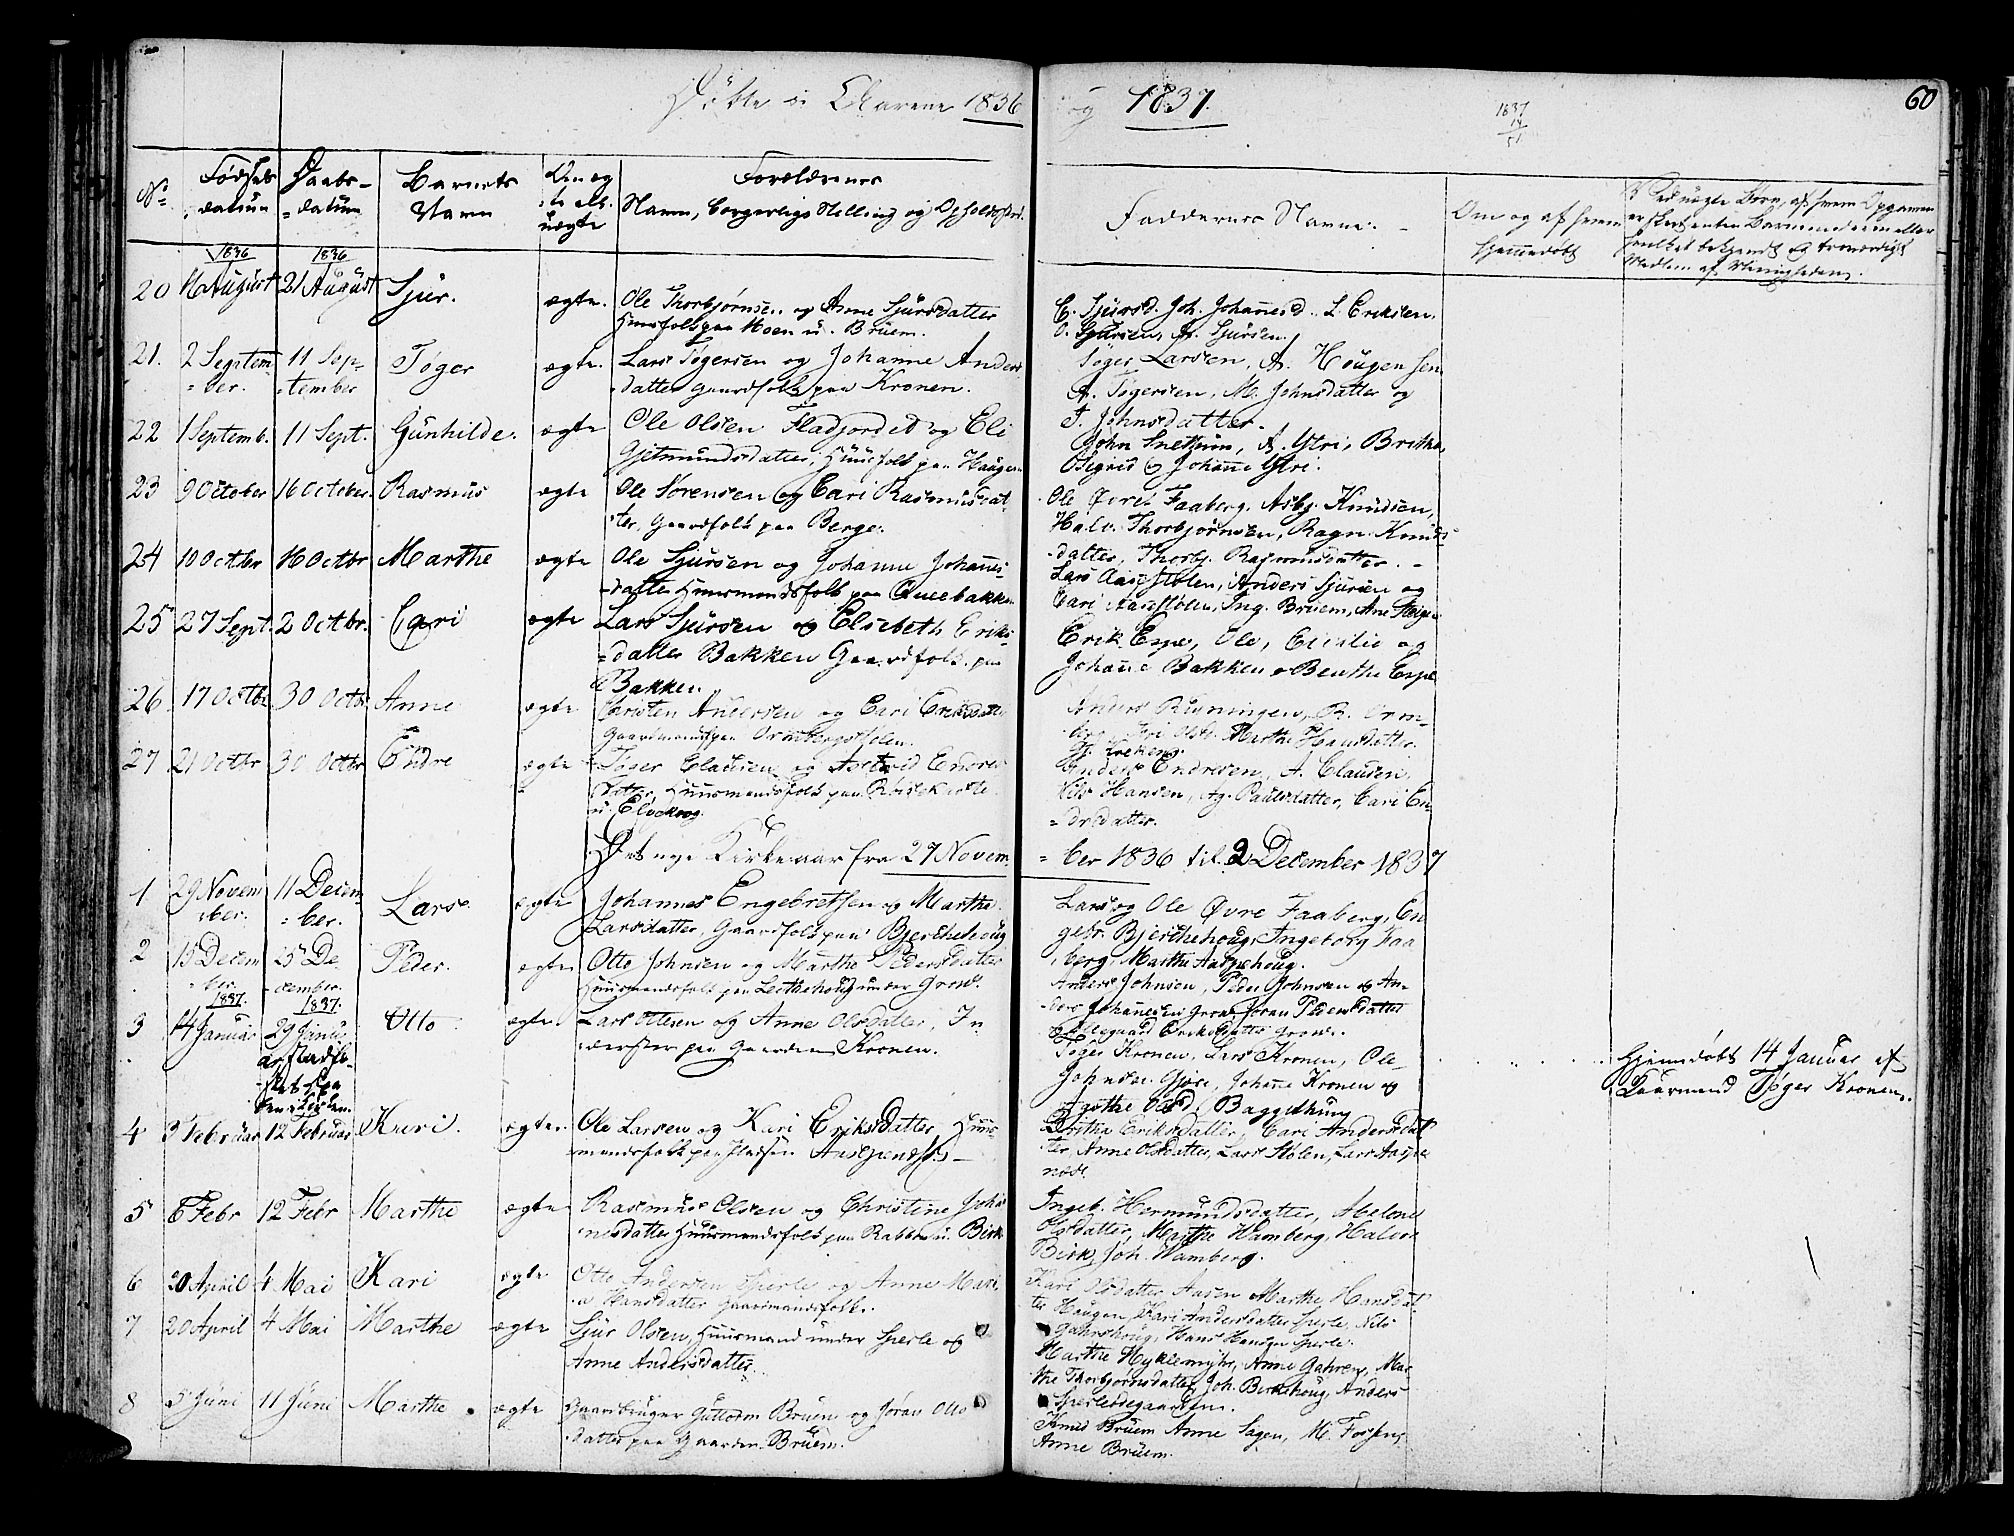 Døbte i Aarene 1836 og 1837.
60
1837
14
51
No
Fødsels datum
Daabs-datum
Barnets Navn
Om ægte ell. uægte
Forældrenes Navn, borgerlige Stilling og Opholdssted.
Faddernes Navne.
Om og af hvem hjemmedøbt
Ved uægte Børn, af hvem Opgaven er skeet enten Barnemoderen eller hvilket bekjendt og troværdigt Medlem af Menigheden.
1836
1836
20 14 August 21 August Sjur. ægte.
Ole Thorbjørnsen og Anne Sjursdatter
Huusfolk paa Moen u. Bruem.
E. Sjursd. Joh. Johannesd. L. Eriksen.
O. Sjursen, A. Sjursen.
21. 2 September. 11 September Tøger ægte.
Lars Tøgersen og Johanne Anders-
datter Gaardfolk paa Kronen.
Tøger Larsen, A. Hougensen
A. Tøgersen, M. Johnsdatter og
I. Johnsdatter.
22 1 Septemb. 11 Sept. Gunhilde. ægte
Ole Olsen Fladjordet og Eli
Gjetmundsdatter, Huusfolk paa Haugen
John Snethun, A. Ytri, Britha,
Sigrid og Johanne Ytri.
23 9 October 16 October. Rasmus ægte
Ole Sørensen og Cari Rasmusdat-
ter, Gaardfolk paa Berge.
Ole Øvre Faaberg, Asbj. Knudsen,
Halv. Thorbjørnsen, Ragn. Knuds-
datter, Thorbj. Rasmusdatter.
24 10 Octbr 16 Octbr Marthe ægte
Ole Sjursen og Johanne Johannes-
datter Huusmandsfolk paa Queebakken
Lars Aasestøлen, Anders Sjursen og
Cari Aasestølen, Ing. Bruem, Ane
25 27 Sept. 2 Octbr. Cari ægte
Lars Sjursen og Elsebeth Eriks-
datter Bakken Gaardfolk paa
Bakken.
Erik Espe, Ole, Cicilie og
Johanne Bakken og Benthe Espe
26 17 Octbr 30 Octbr Anne ægte
Christen Andersen og Cari Eriksdatter
Gaardmand paa Ormbergstølen.
Anders Ravningen, R. Orm-
berg, Marthe Hansdatter.
27 21 Octbr 30 Octbr Endre ægte
Tøger Clausen og Astrid Endres-
datter, Huusmandsfolk paa
u. Elvekrog.
Anders Endresen, A. Clausen,
Nils Hansen, Ag. Paulsdatter, Cari En-
dresdatter.
Det nye Kirkeaar fra 27 Novem-
ber 1836 til 2 December 1837
1 29 November. 11 December. Lars. ægte
Johannes Engebretsen og Marthe
Larsdatter, Gaardfolk paa Bjerkehoug
Lars og Ole Øvre Faaberg, En-
gebr. Bjerkehoug, Ingeborg Faa-
berg, Marthe Aasehoug.
2 15 December. 25 December. Peder. ægte
Otto Johnsen og Marthe Pedersdatter
Huusmandsfolk paa Leithehoug under Grov.
Anders Johnsen, Peder Johnsen og An-
ders Johannesen Grov, Joran Pedersdatter
og Allegaard Eriksdatter Grov.
1837.
1837.
3 14 Januar 29 Januar stadfæstet Otto ægte.
Lars Ottesen og Anne Olsdatter, In-
derster paa Gaarden Kronen.
Tøger Kronen, Lars Kronen, Ole
Johnsen Gjore, Johanne Kronen og
Agathe Baggethun
Hjemdøbt 14 Januar af
Gaarmand Tøger Kronen.
4 3 Februar 12 Februar Kari. ægte.
Ole Larsen og Kari Eriksdatter Huus-
mandsfolk paa
Britha Eriksdatter, Cari Andersdat-
ter, Anne Olsdatter, Lars Stølen, Lars
5 6 Febr 12 Febr Marthe ægte
Rasmus Olsen og Christine Joha-
nesdatter Huusmandsfolk paa Rabben u. Birk
Ingeb. Hermundsdatter, Helene
Olsdatter, Marthe Wamberg, Halvor
Birk, Joh. Wamberg.
6 20 April 4 Mai Kari ægte
Otto Andersen Sperle og Anne Mari-
a Hansdatter Gaarmandsfolk.
Kari Olsdatter Aasen Marthe Hansdat-
ter Haugen, Kari Andersdatter Sperle, Nils
Gahrehoug, Hans Hansen Sperle.
7 20 April 4 Mai Marthe ægte
Sjur Olsen, Huusmand under Sperle og
Anne Andersdatter.
Marthe Myklemyhr, Anne Gahren, Mar-
the Thorbjørnsdatter, Joh. Birkehoug, Anders
8 5 Juni 11 Juni Marthe ægte
Gaardbruger Guttorm Bruem og Joran Otto-
datter paa Gaarden Bruem.
Knud Bruem Anne Sagen, M. Fossen,
Anne Bruem.